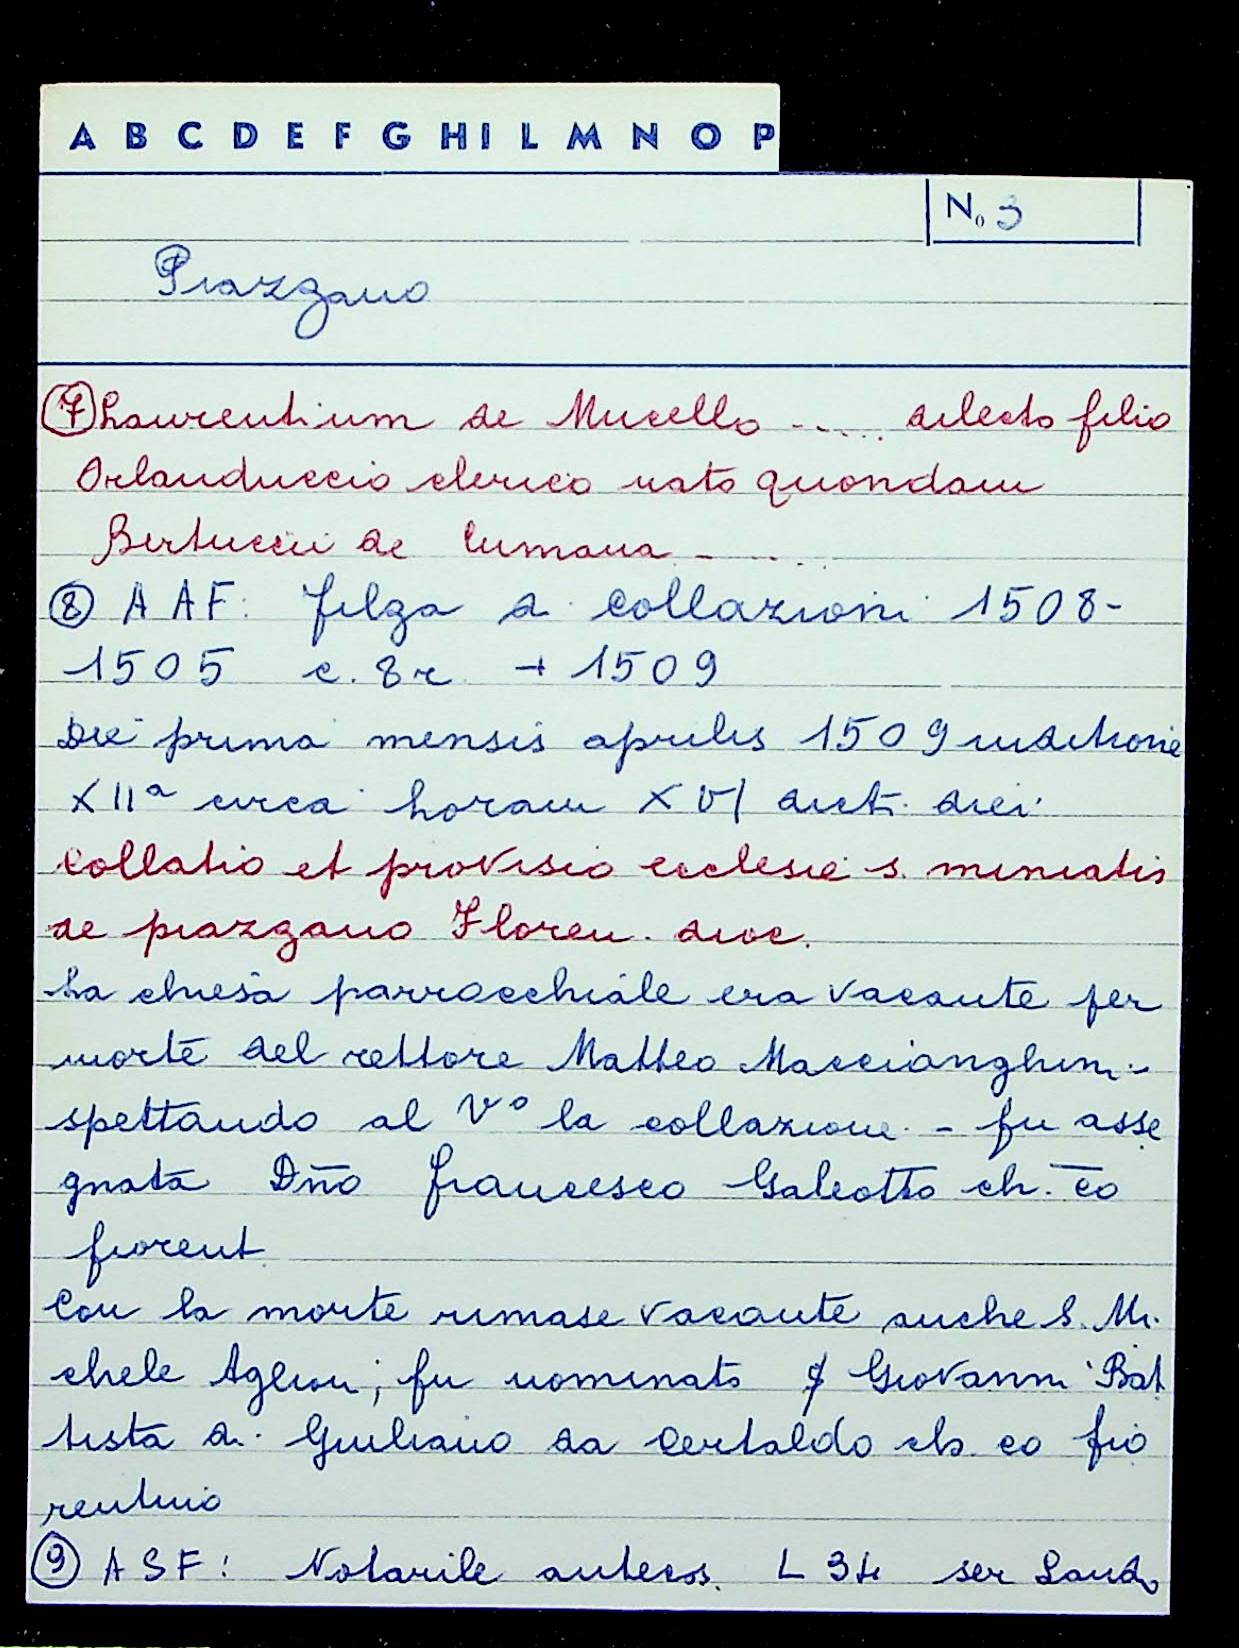 A B C D E F G H I L M N O P
No 3
Piazzano
7 Laurentium de Mucello ..... dilecto filio
Orlanduccio clerico nato quondam
Bertuccii de Cumana - ....
8 AAF: filza di collazioni 1508-
1505 c. 8r + 1509
Die prima mensis aprilis 1509 indictione
XIIa circa horam XVI dict. diei
Collatio et provisio ecclesie s. miniatis
de piazzano Floren. dioc.
La chiesa parrocchiale era vacante per
morte del rettore Matteo Maccianghini -
spettando al Vo la collazione - fu asse
gnata Dño Francesco Galeotto ch. co
fiorent
Con la morte rimase vacante anche S. Mi
chele Aglioni; fu nominato Giovanni Bat
tista di Giuliano da Certaldo ch. co fio
rentino
9 ASF: Notarile antecos. L 34 ser Lando